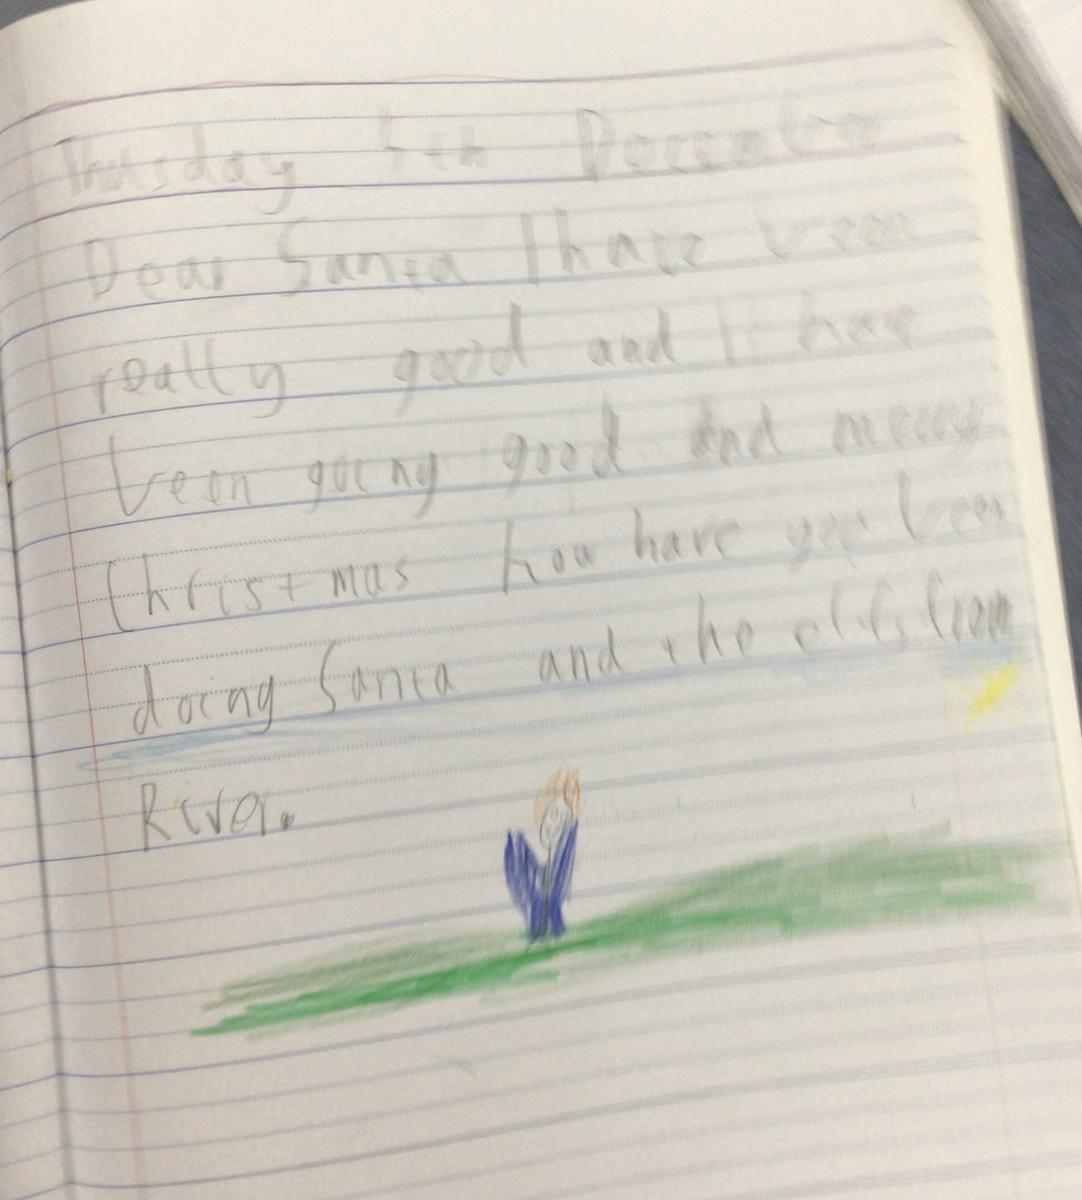 Thusday 5th December
Dear Santa I have been
really good and I have
been going good and merry
Christmas how have you been
doing Santa and the elfs from
Riva.